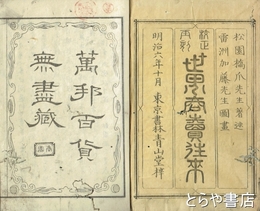 松園橋爪先生著述
雷洲加藤先生圖畫
世界商賣往来
明治六年十月
東京書林青山堂梓
萬邦百貨
無盡藏
とらや書店